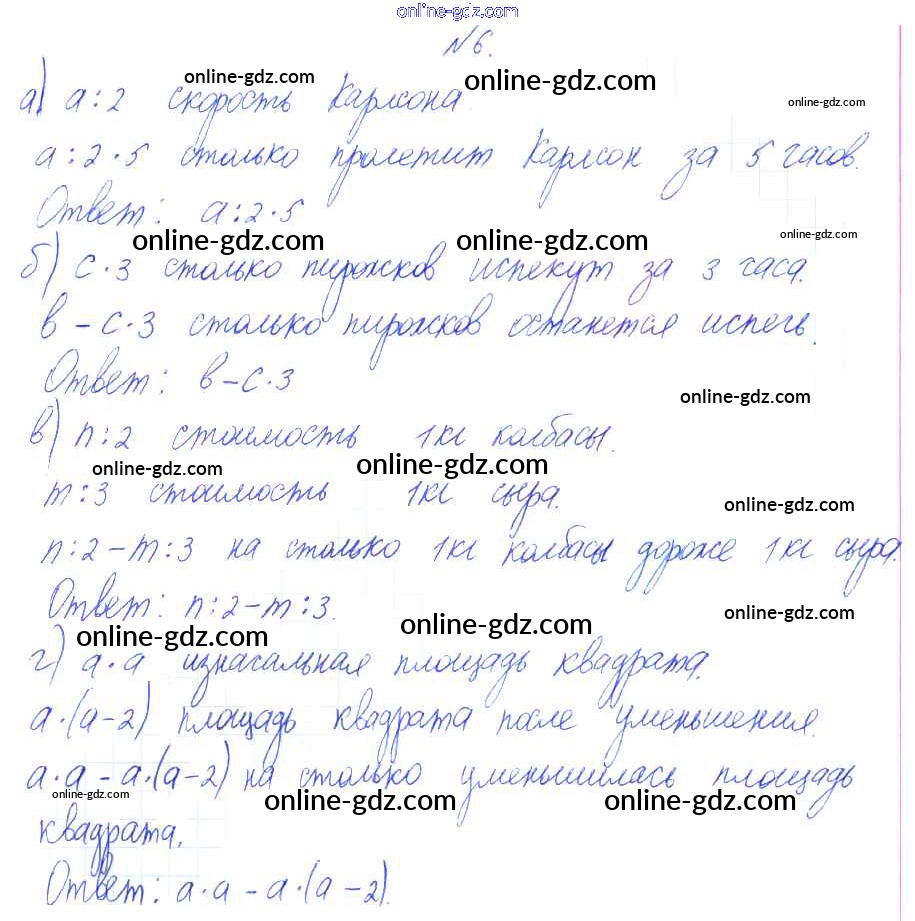 online-gdz.com
№6.
а) а:2 скорость Карлсона.
online-gdz.com online-gdz.com online-gdz.com
а:2·5 столько пролетит Карлсон за 5 часов.
Ответ: а:2·5
online-gdz.com online-gdz.com online-gdz.com
б) с·3 столько пирожков испекут за 3 часа.
в-с·3 столько пирожков останется испечь.
Ответ: в-с·3
online-gdz.com
в) n:2 стоимость 1кг колбасы.
online-gdz.com online-gdz.com
m:3 стоимость 1кг сыра.
online-gdz.com
n:2-m:3 на столько 1кг колбасы дороже 1кг сыра.
Ответ: n:2-m:3.
online-gdz.com online-gdz.com online-gdz.com
г) а·а изначальная площадь квадрата.
а·(а-2) площадь квадрата после уменьшения.
а·а-а·(а-2) на столько уменьшилась площадь
online-gdz.com online-gdz.com online-gdz.com
квадрата.
Ответ: а·а-а·(а-2).